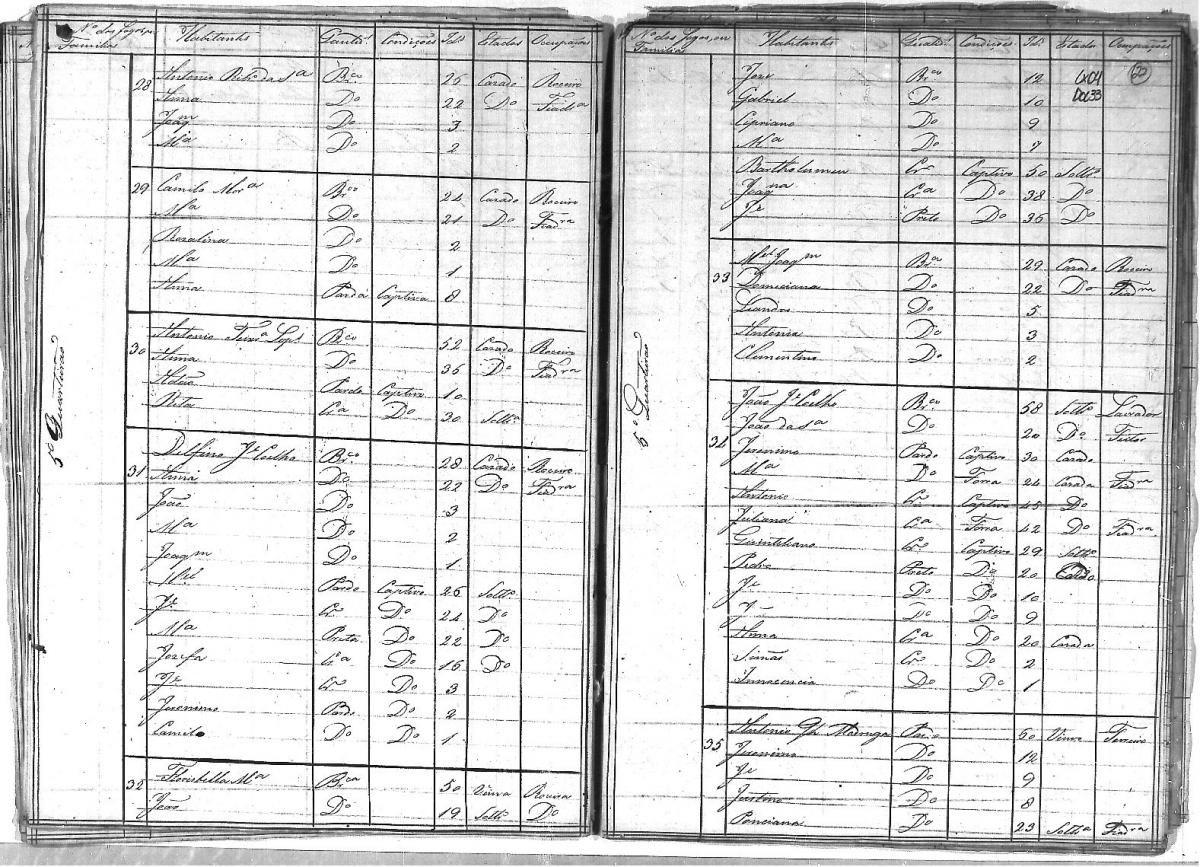 Nº dos Fogos, ou Familias Habitantes Qualid.^ Condições Id.^ Estados Occupações
5º Quarteirão
28 Antonio Ribº da S.ª Br.co 26 Casado Roceiro
Anna Dº 22 Dº Fiad.ra
Joaq.m Dº 3
M.ª Dº 2
29 Camilo Mor.ª Br.co 24 Casado Roceiro
M.ª Dº 21 Dº Fiad.ra
Rosalina Dº 2
M.ª Dº 1
Anna Parda Captiva 8
30 Antonio Lop.s Br.co 52 Casado Roceiro
Anna Dº 36 Dº Fiad.ra
Adão Pardo Captivo 10
Rita Cr.ª Dº 30 Soltr.ª
31 Delfino J.e Coelho Br.co 28 Casado Roceiro
Anna Dº 22 Dº Fiad.ra
João Dº 3
M.ª Dº 2
Joaq.m Dº 1
M.el Pardo Captivo 26 Soltrº
J.e Cr.º Dº 24 Dº
M.ª Preta Dº 22 Dº
Jozefa Cr.ª Dº 16 Dº
J.e Cr.º Dº 3
Jeronimo Pardo Dº 2
Camilo Dº Dº 1
32 Florisbella M.ª Br.ca 50 Viuva Roceira
João Dº 19 Soltrº Dº
Nº dos Fogos, ou Familias Habitantes Qualid.^ Condições Id.^ Estado Occupações
5º Quarteirão
José Br.co 12 CX04 22
Gabriel Dº 10 DOC33
Cipriano Dº 9
M.ª Dº 7
Bartholomeu Cr.º Captivo 50 Soltrº
Joaq.na Cr.ª Dº 38 Dº
J.e Preto Dº 36 Dº
33 M.el Joaq.m Br.º 29 Casado Roceiro
Domiciana Dº 22 Dº Fiad.ra
Leandro Dº 5
Antonia Dº 3
Clementino Dº 2
34 João J.e Coelho Br.co 58 Soltrº Lavrador
João da S.ª Dº 20 Dº Feitor
Jeronimo Pardo Captivo 30 Casado
M.ª Dº Forra 24 Casada Fiad.ra
Antonio Cr.º Captivo 45 Dº
Juliana Cr.ª Forra 42 Dº Fiad.ra
Quintiliano Cr.º Captivo 29 Soltrº
Pedro Preto Dº 20
J.e Dº Dº 10
Dº Dº 9
Anna Cr.ª Dº 20 Casada
Simão Cr.º Dº 2
Innocencia Dº Dº 1
35 Antonio Par.º 50 Viuvo Ferreiro
Jeronimo Dº 12
J.e Dº 9
Justino Dº 8
Ponciana Dº 23 Soltr.ª Fiad.ra